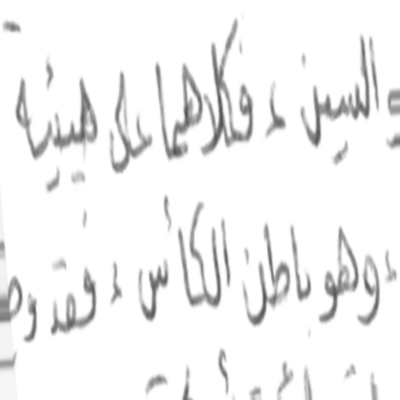 السين ، فكلاهما على هيئة
، وهو باطن الكأس ، فقد وص